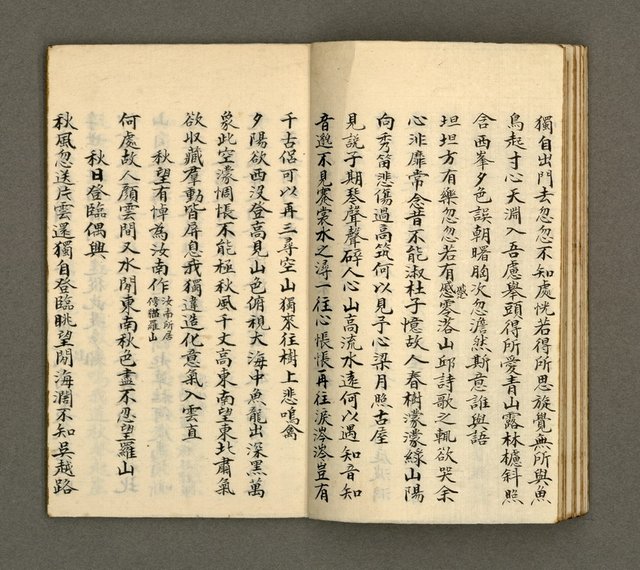 獨自出門去忽忽不知處恍若得所思旋覺無所與魚
鳥起寸心天淵入吾慮舉頭得所愛青山露林樾斜照
含西峯夕色誤朝曙胸次忽澹然斯意誰與語
坦坦方有樂忽忽若有感零落山邱詩歌之輒欲哭余
感
心非靡常念昔不能淑杜子憶故人春樹濛濛綠山陽
向秀笛悲傷過高筑何以見予心梁月照古屋
見說子期琴聲聲碎人心山高流水遠何以遇知音知
音邈不見褰裳水之潯一往心悵悵再往淚涔涔豈有
千古侶可以再三尋空山獨來往樹上悲鳴禽
夕陽欲西沒登高見山色俯視大海中魚龍出深黑萬
象此空濛惆悵不能極秋風千丈高東南望東北肅氣
欲收藏羣動皆屏息我獨違造化意氣入雲直
秋望有悼為汝南作汝南所居
傍繼羅山
何處故人顏雲間又水閒東南秋色盡不忍望羅山
秋日登臨偶興
秋風忽送片雲還獨自登臨眺望閒海濶不知吳越路